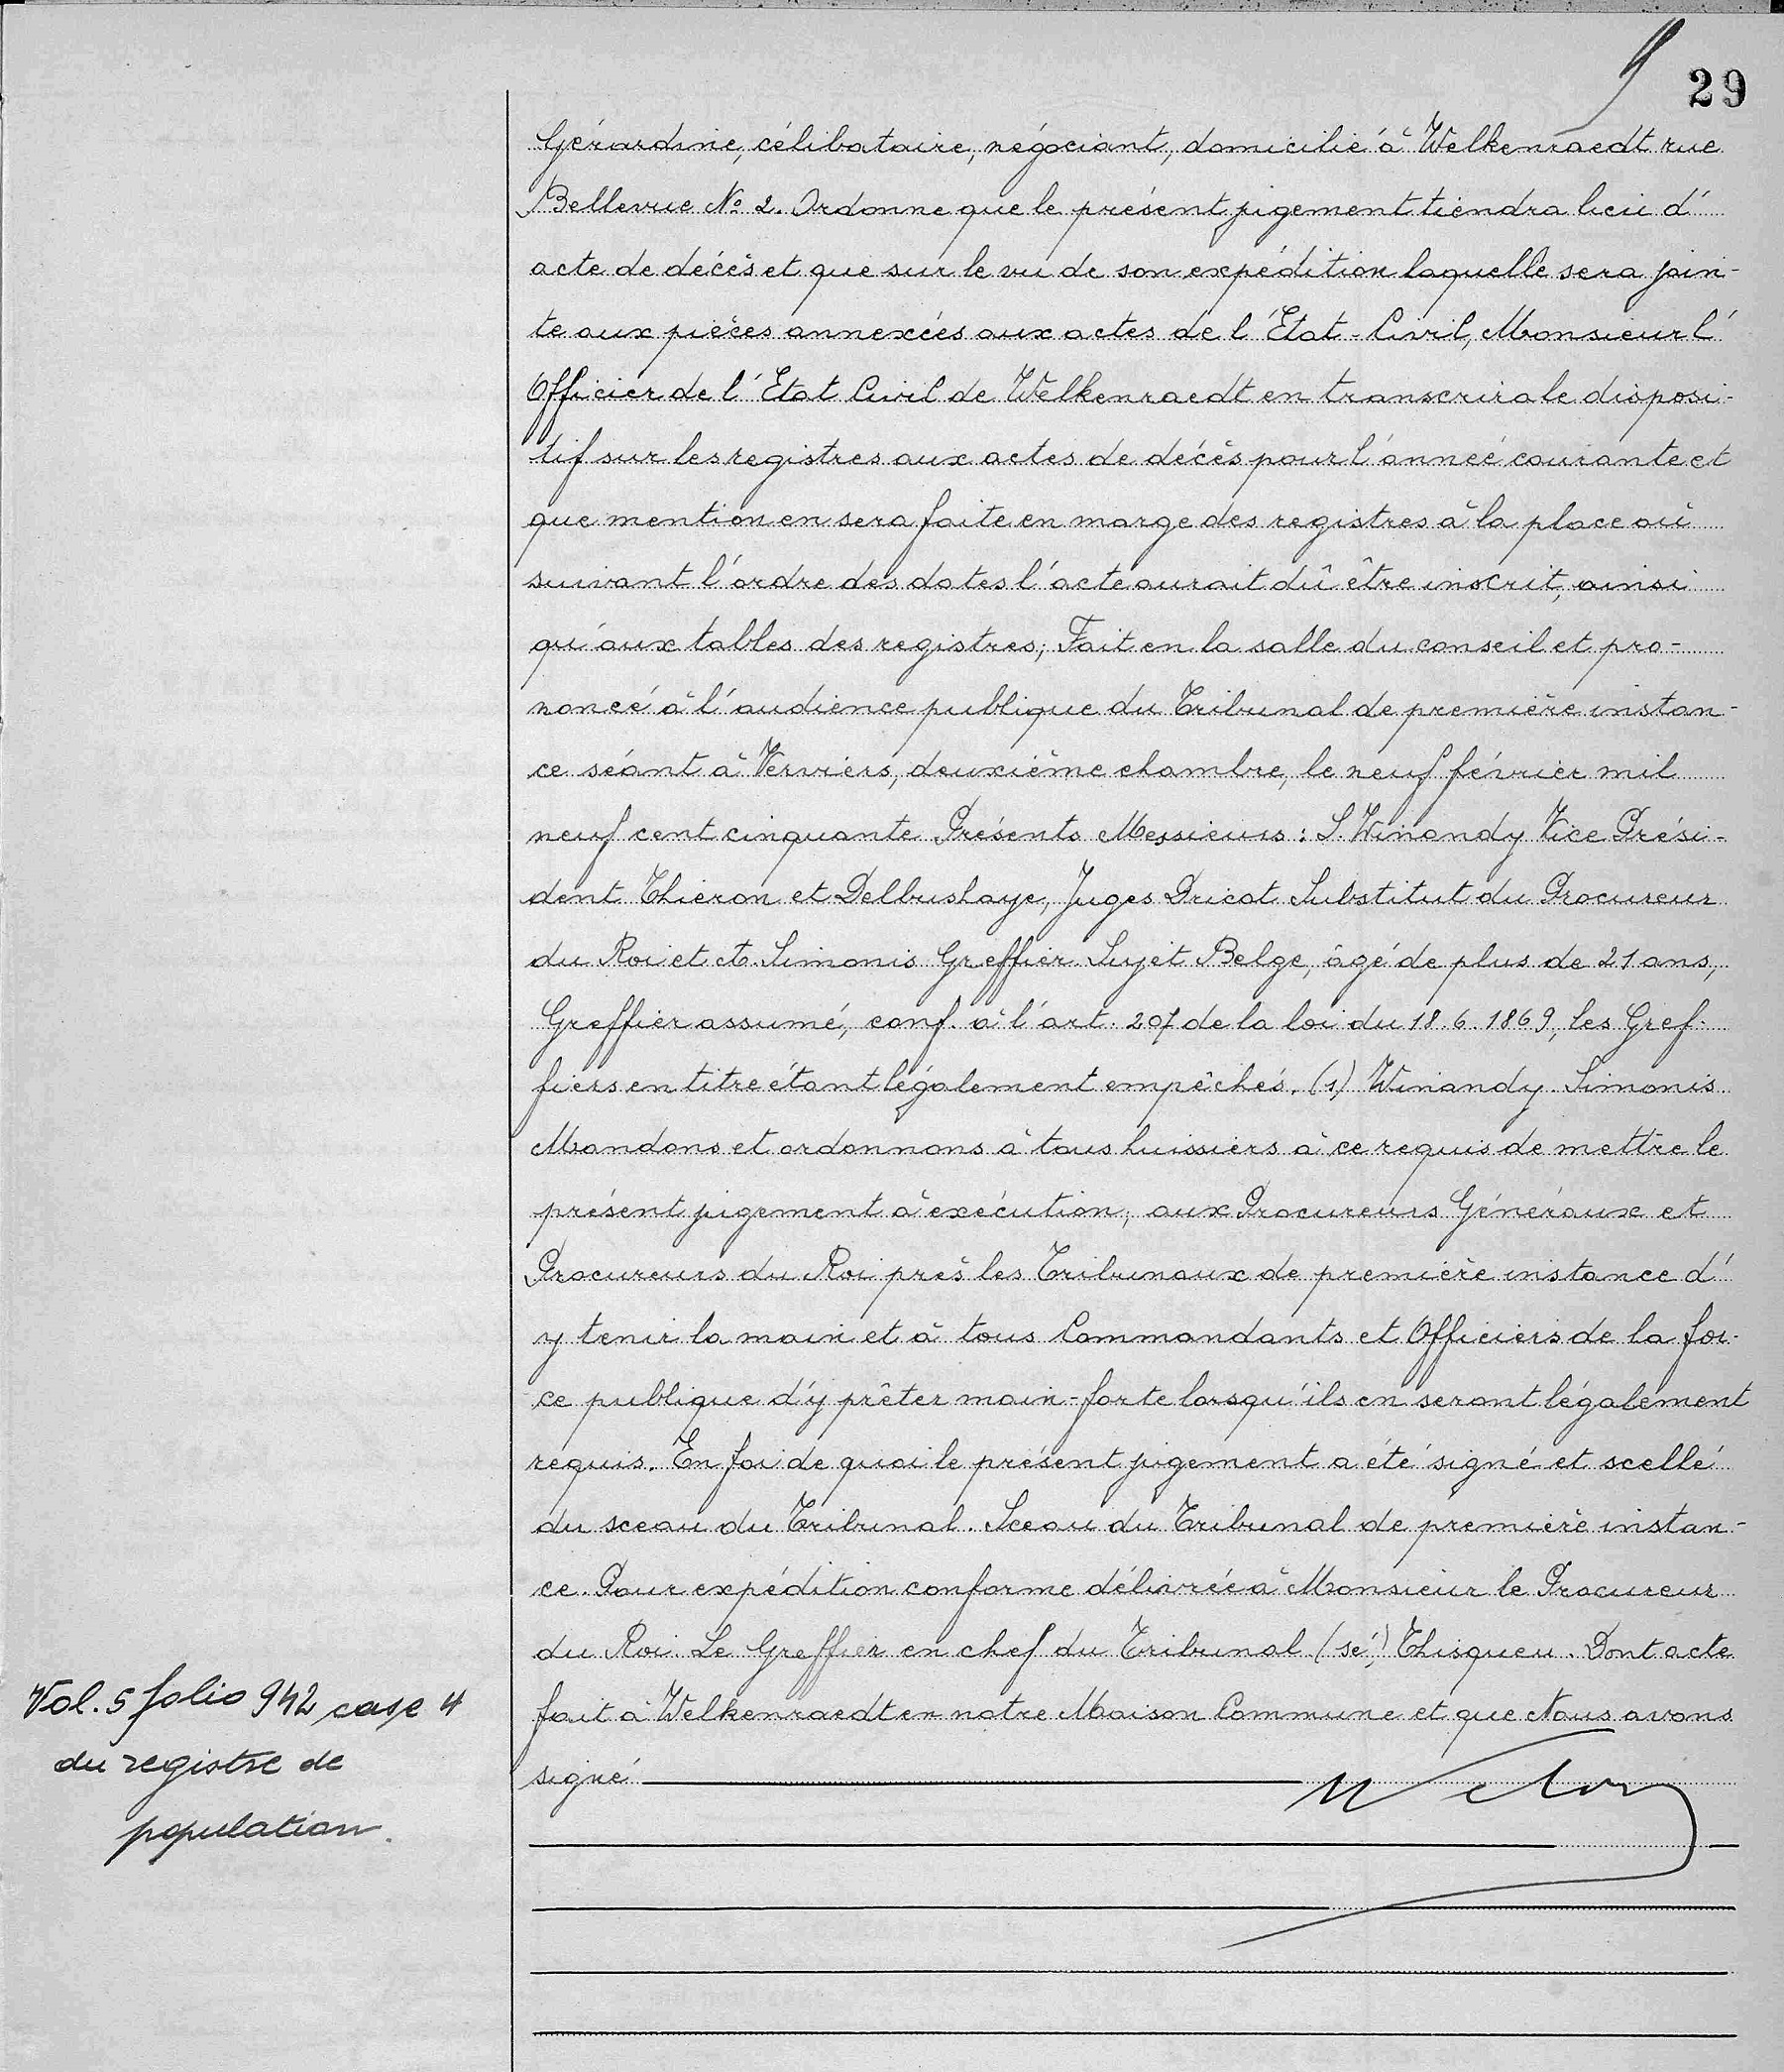 29
Gérardine, célibataire, négociant, domicilié à Welkenraedt rue
Bellevue No 2. Ordonne que le présent jugement tiendra lieu d'
acte de décès et que sur le vu de son expédition laquelle sera join-
te aux pièces annexées aux actes de l'Etat-Civil, Monsieur l'
Officier de l'Etat Civil de Welkenraedt en transcrira le disposi-
tif sur les registres aux actes de décès pour l'année courante et
que mention en sera faite en marge des registres à la place où
suivant l'ordre des dates l'acte aurait dû être inscrit, ainsi
qu'aux tables des registres; Fait en la salle du conseil et pro-
noncé à l'audience publique du Tribunal de première instan-
ce séant à Verviers, deuxième chambre, le neuf février mil
neuf cent cinquante Présents Messieurs: L. Winandy Vice Prési-
dent Thieron et Delbushaye, Juges Dricot Substitut du Procureur
du Roi et A. Simonis Greffier Sujet Belge, âgé de plus de 21 ans,
Greffier assumé, conf. à l'art. 207 de la loi du 18.6.1869, les Gref-
fiers en titre étant légalement empêchés. (s) Winandy Simonis
Mandons et ordonnons à tous huissiers à ce requis de mettre le
présent jugement à exécution; aux Procureurs Généraux et
Procureurs du Roi près les Tribunaux de première instance d'
y tenir la main et à tous Commandants et Officiers de la for-
ce publique d'y prêter main-forte lorsqu'ils en seront légalement
requis. En foi de quoi le présent jugement a été signé et scellé
du sceau du Tribunal. Sceau du Tribunal de première instan-
ce. Pour expédition conforme délivrée à Monsieur le Procureur
du Roi Le Greffier en chef du Tribunal (sé) Thisqueu. Dont acte
fait à Welkenraedt en notre Maison Commune et que Nous avons
signé
Vol. 5 folio 942 case 4
du registre de
population.